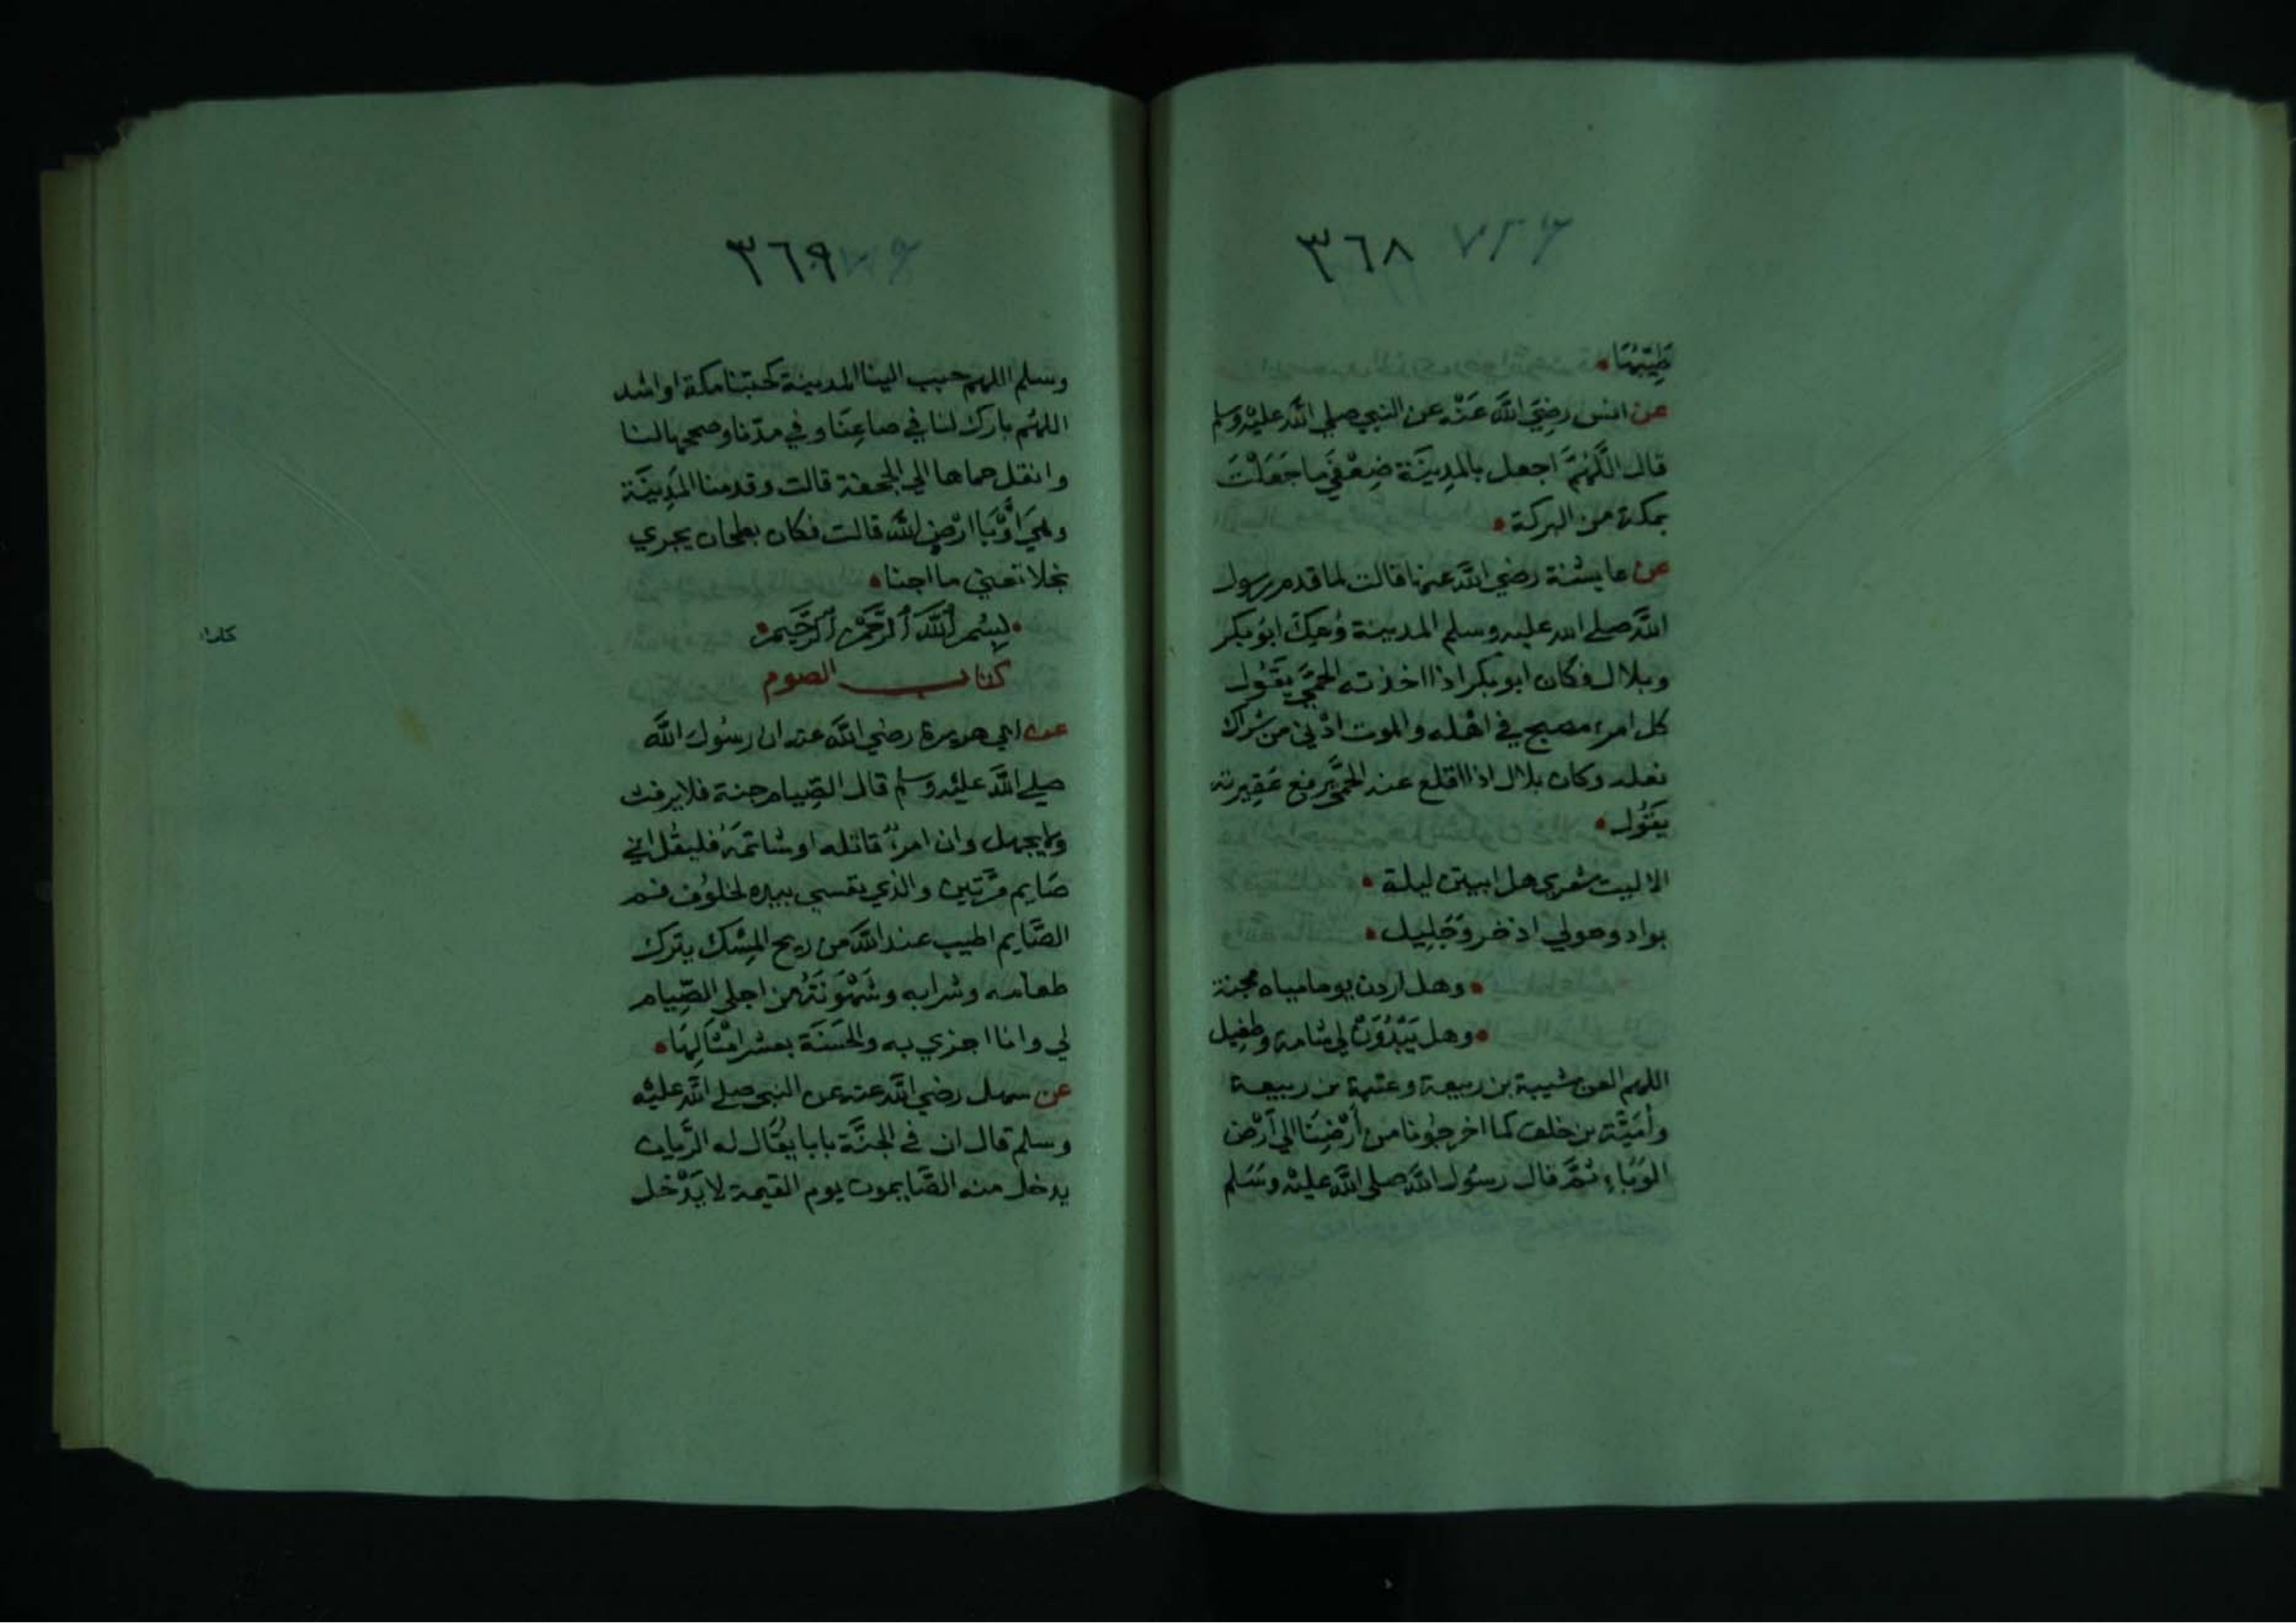 ٣٦٨
طِيَبُهَا
عن انس رضِيَ اللَّه عَنْه عن النبي صلي اللَّه عليْه وسلم
قال اللَّهُمَّ اجعل بالمدِينَة ضِعْفَي ما جَعَلْتَ
بمكة من البركة
عن عايشة رضي اللَّه عنها قالت لما قدم رسول
اللَّه صلي الله عليه وسلم المدينة وُعِكَ ابُو بكر
وبلال فكان ابو بكر اذا اخذته الحمَّي يَقُول
كل امرء مصبح في اهْله والموت ادْني من شراك
نعله وكان بلال اذا اقلع عنه الحمَّي يرفع عَقِيرته
يَقُول
الا ليت شعري هل ابيتن ليلة
بواد وحولي اذخر وَجَلِيل
وهل اردن يوما مياه مجنة
وهل يَبْدُوَنْ لي شامة وطفيل
اللهم العن شيبة بن ربيعة وعتبة بن ربيعة
وأميَّة بن خلف كما اخرجُونا من أَرْضِنَا الي أَرْض
الوَبَاءِ ثمَّ قال رسُول اللَّه صلي اللَّه عليْه وسَلم
٣٦٩
وسلم اللهم حبب الينا المدينة كحبنا مكة او اشد
اللهُم بارك لنا في صاعِنَا وفي مدّنا وصححها لنا
وانقل حماها الي الجحفة قالت وقدمنا المَدِينَة
وهيَ اوْبَا ارْضِ للَّه قالت فكان بطحان يجري
نجلا تعني ما اجنا
بِسْم اللَّه الرَّحمٰن الرَّحِيم
كتاب الصوم
عن ابي هريرة رضي اللَّه عنه ان رسُول اللَّه
صلي اللَّه عليْه وسلم قال الصِّيام جنة فلا يرفث
ولا يجهل وان امرءٌ قاتله او شاتمَهُ فليقل اني
صَايم مرَّتين والذي نفسي بيده لخلوُف فم
الصَّايم اطيب عند اللَّه من ريح المِسْك يترك
طعامه وشرابه وشَهْوَتَهُ من اجلي الصِّيام
لي وانا اجزي به والحَسَنَة بعشر امْثَالِهَا
عن سهل رضي اللَّه عنه عن النبي صلي اللَّه عليْه
وسلم قال ان في الجنَّة بابا يقَال له الرَّيان
يدخل منه الصَّايمون يوم القيمة لا يَدْخل